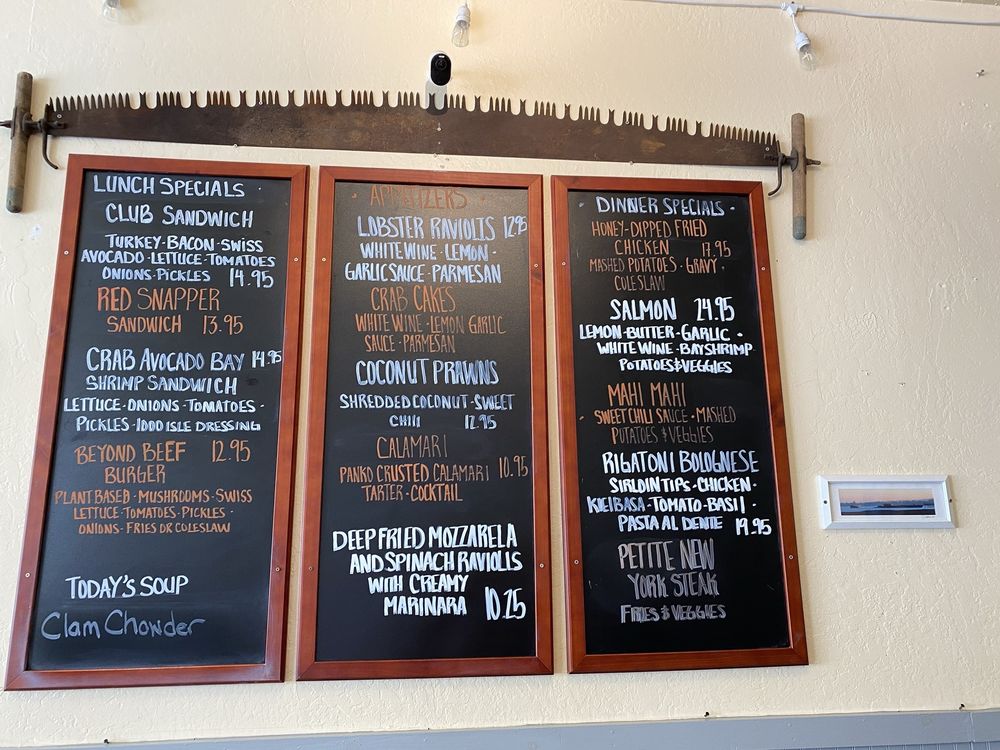 LUNCH SPECIALS
CLUB SANDWICH
TURKEY-BACON-SWISS
AVOCADO-LETTUCE-TOMATOES
ONIONS-PICKLES 14.95
RED SNAPPER
SANDWICH 13.95
CRAB AVOCADO BAY 14.95
SHRIMP SANDWICH
LETTUCE-ONIONS-TOMATOES-
PICKLES-1000 ISLE DRESSING
BEYOND BEEF 12.95
BURGER
PLANT BASED-MUSHROOMS-SWISS
LETTUCE-TOMATOES-PICKLES-
ONIONS-FRIES OR COLESLAW
TODAY'S SOUP
Clam Chowder
APPETIZERS
LOBSTER RAVIOLIS 12.95
WHITE WINE-LEMON-
GARLIC SAUCE-PARMESAN
CRAB CAKES
WHITE WINE-LEMON GARLIC
SAUCE-PARMESAN
COCONUT PRAWNS
SHREDDED COCONUT-SWEET
CHILI 12.95
CALAMARI
PANKO CRUSTED CALAMARI 10.95
TARTER-COCKTAIL
DEEP FRIED MOZZARELA
AND SPINACH RAVIOLIS
WITH CREAMY
MARINARA 10.25
DINNER SPECIALS-
HONEY-DIPPED FRIED
CHICKEN 17.95
MASHED POTATOES-GRAVY-
COLESLAW
SALMON 24.95
LEMON-BUTTER-GARLIC-
WHITE WINE-BAYSHRIMP
POTATOES & VEGGIES
MAHI MAHI
SWEET CHILI SAUCE-MASHED
POTATOES & VEGGIES
RIGATONI BOLOGNESE
SIRLOIN TIPS-CHICKEN-
KIELBASA-TOMATO-BASIL-
PASTA AL DENTE 19.95
PETITE NEW
YORK STEAK
FRIES & VEGGIES